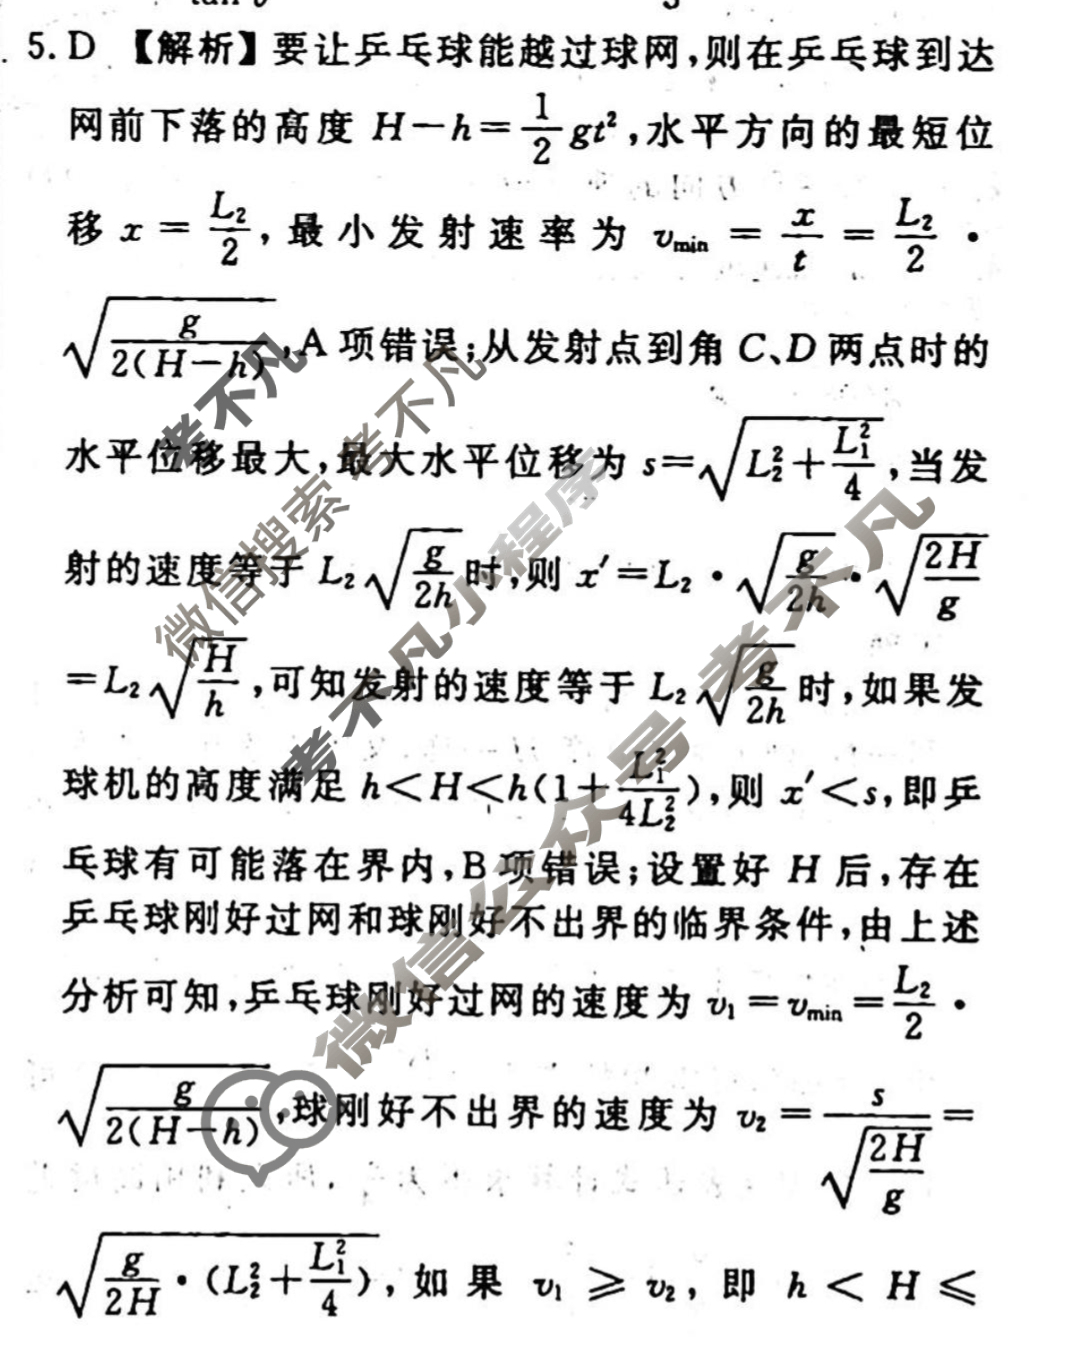 5. D 【解析】要让乒乓球能越过球网,则在乒乓球到达
网前下落的高度 H－h＝1/2 gt²,水平方向的最短位
移 x ＝ L₂/2, 最小发射速率为 v_min ＝ x/t ＝ L₂/2 ·
√(g/2(H－h)),A 项错误;从发射点到角 C、D 两点时的
水平位移最大,最大水平位移为 s＝√(L₂²＋L₁²/4),当发
射的速度等于 L₂√(g/2h)时,则 x′＝L₂·√(g/2h)·√(2H/g)
＝L₂√(H/h),可知发射的速度等于 L₂√(g/2h)时,如果发
球机的高度满足 h＜H＜h(1＋L₁²/4L₂²),则 x′＜s,即乒
乓球有可能落在界内,B 项错误;设置好 H 后,存在
乒乓球刚好过网和球刚好不出界的临界条件,由上述
分析可知,乒乓球刚好过网的速度为 v₁＝v_min＝L₂/2 ·
√(g/2(H－h)),球刚好不出界的速度为 v₂＝s/√(2H/g)＝
√(g/2H·(L₂²＋L₁²/4)), 如果 v₁ ≥ v₂, 即 h ＜ H ≤
考不凡
微信搜索 考不凡
考不凡小程序
微信公众号 考不凡